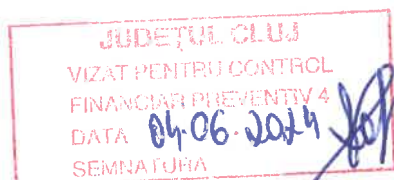 JUDEȚUL CLUJ
VIZAT PENTRU CONTROL
FINANCIAR PREVENTIV 4
DATA 04.06.2024
SEMNATURA